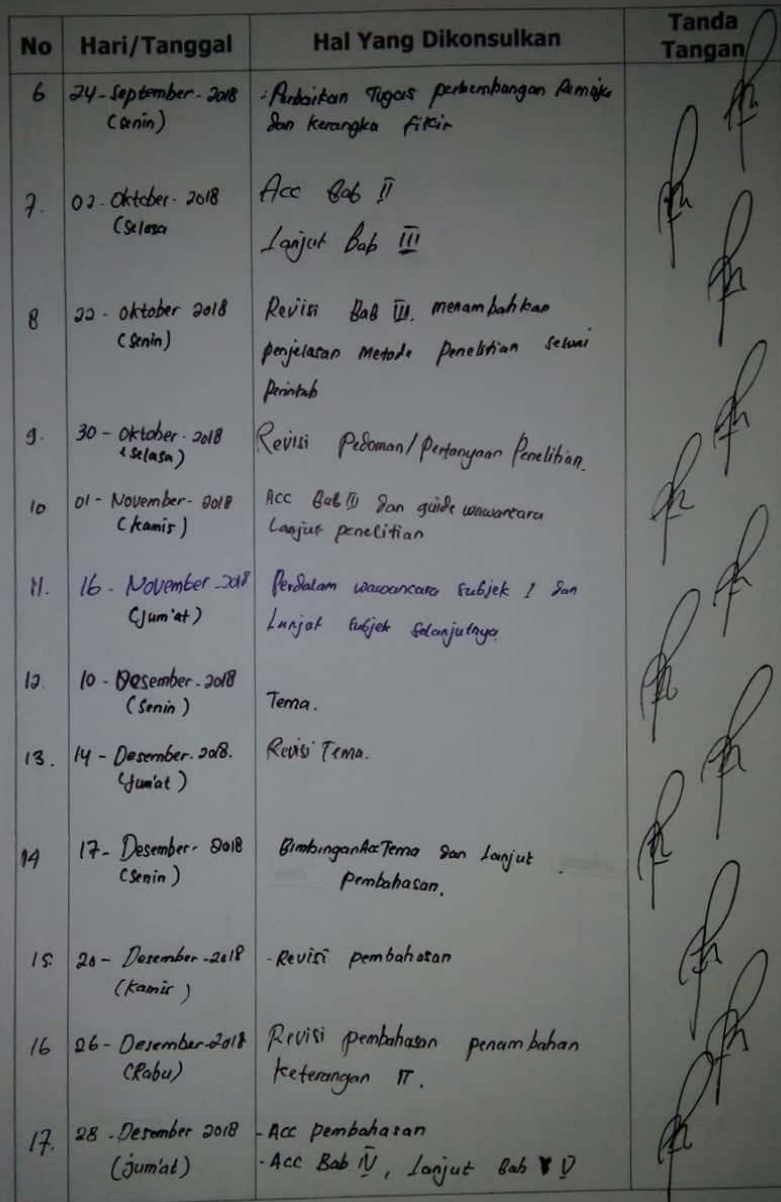 No Hari/Tanggal Hal Yang Dikonsulkan Tanda Tangan
6 24-September-2018 - Perbaikan Tugas perkembangan Remaja
(Senin) dan kerangka fikir
7. 02-Oktober-2018 Acc Bab II
(Selasa Lanjut Bab III
8 22-Oktober 2018 Revisi Bab III. menambahkan
(Senin) penjelasan metode Penelitian sesuai
perintah
9. 30-Oktober-2018 Revisi Pedoman/Pertanyaan Penelitian.
(Selasa)
10 01-November-2018 Acc Bab III dan guide wawancara
(Kamis) Lanjut penelitian
11. 16-November-2018 Perdalam wawancara subjek I dan
(Jum'at) Lanjut subjek selanjutnya
12. 10-Desember-2018
(Senin) Tema.
13. 14-Desember-2018. Revisi Tema.
(Jum'at)
14 17-Desember-2018 Bimbingan Acc Tema dan Lanjut
(Senin) Pembahasan.
15. 20-Desember-2018 - Revisi pembahasan
(Kamis)
16 26-Desember-2018 Revisi pembahasan penambahan
(Rabu) keterangan IT.
17. 28-Desember 2018 - Acc pembahasan
(Jum'at) - Acc Bab IV, Lanjut Bab V